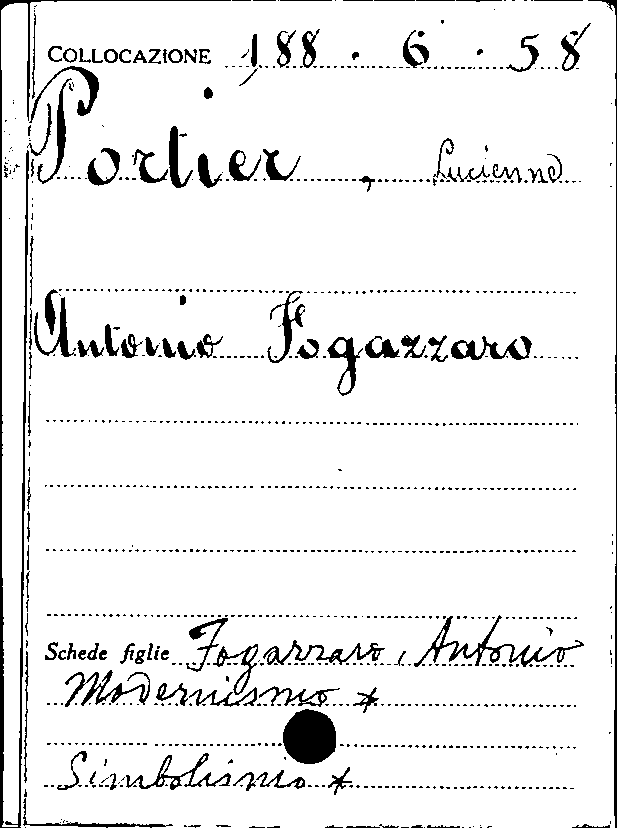 COLLOCAZIONE 188 . 6 . 58
Portier , Lucienne
Antonio Fogazzaro
Schede figlie Fogazzaro, Antonio
Modernismo *
Simbolismo *